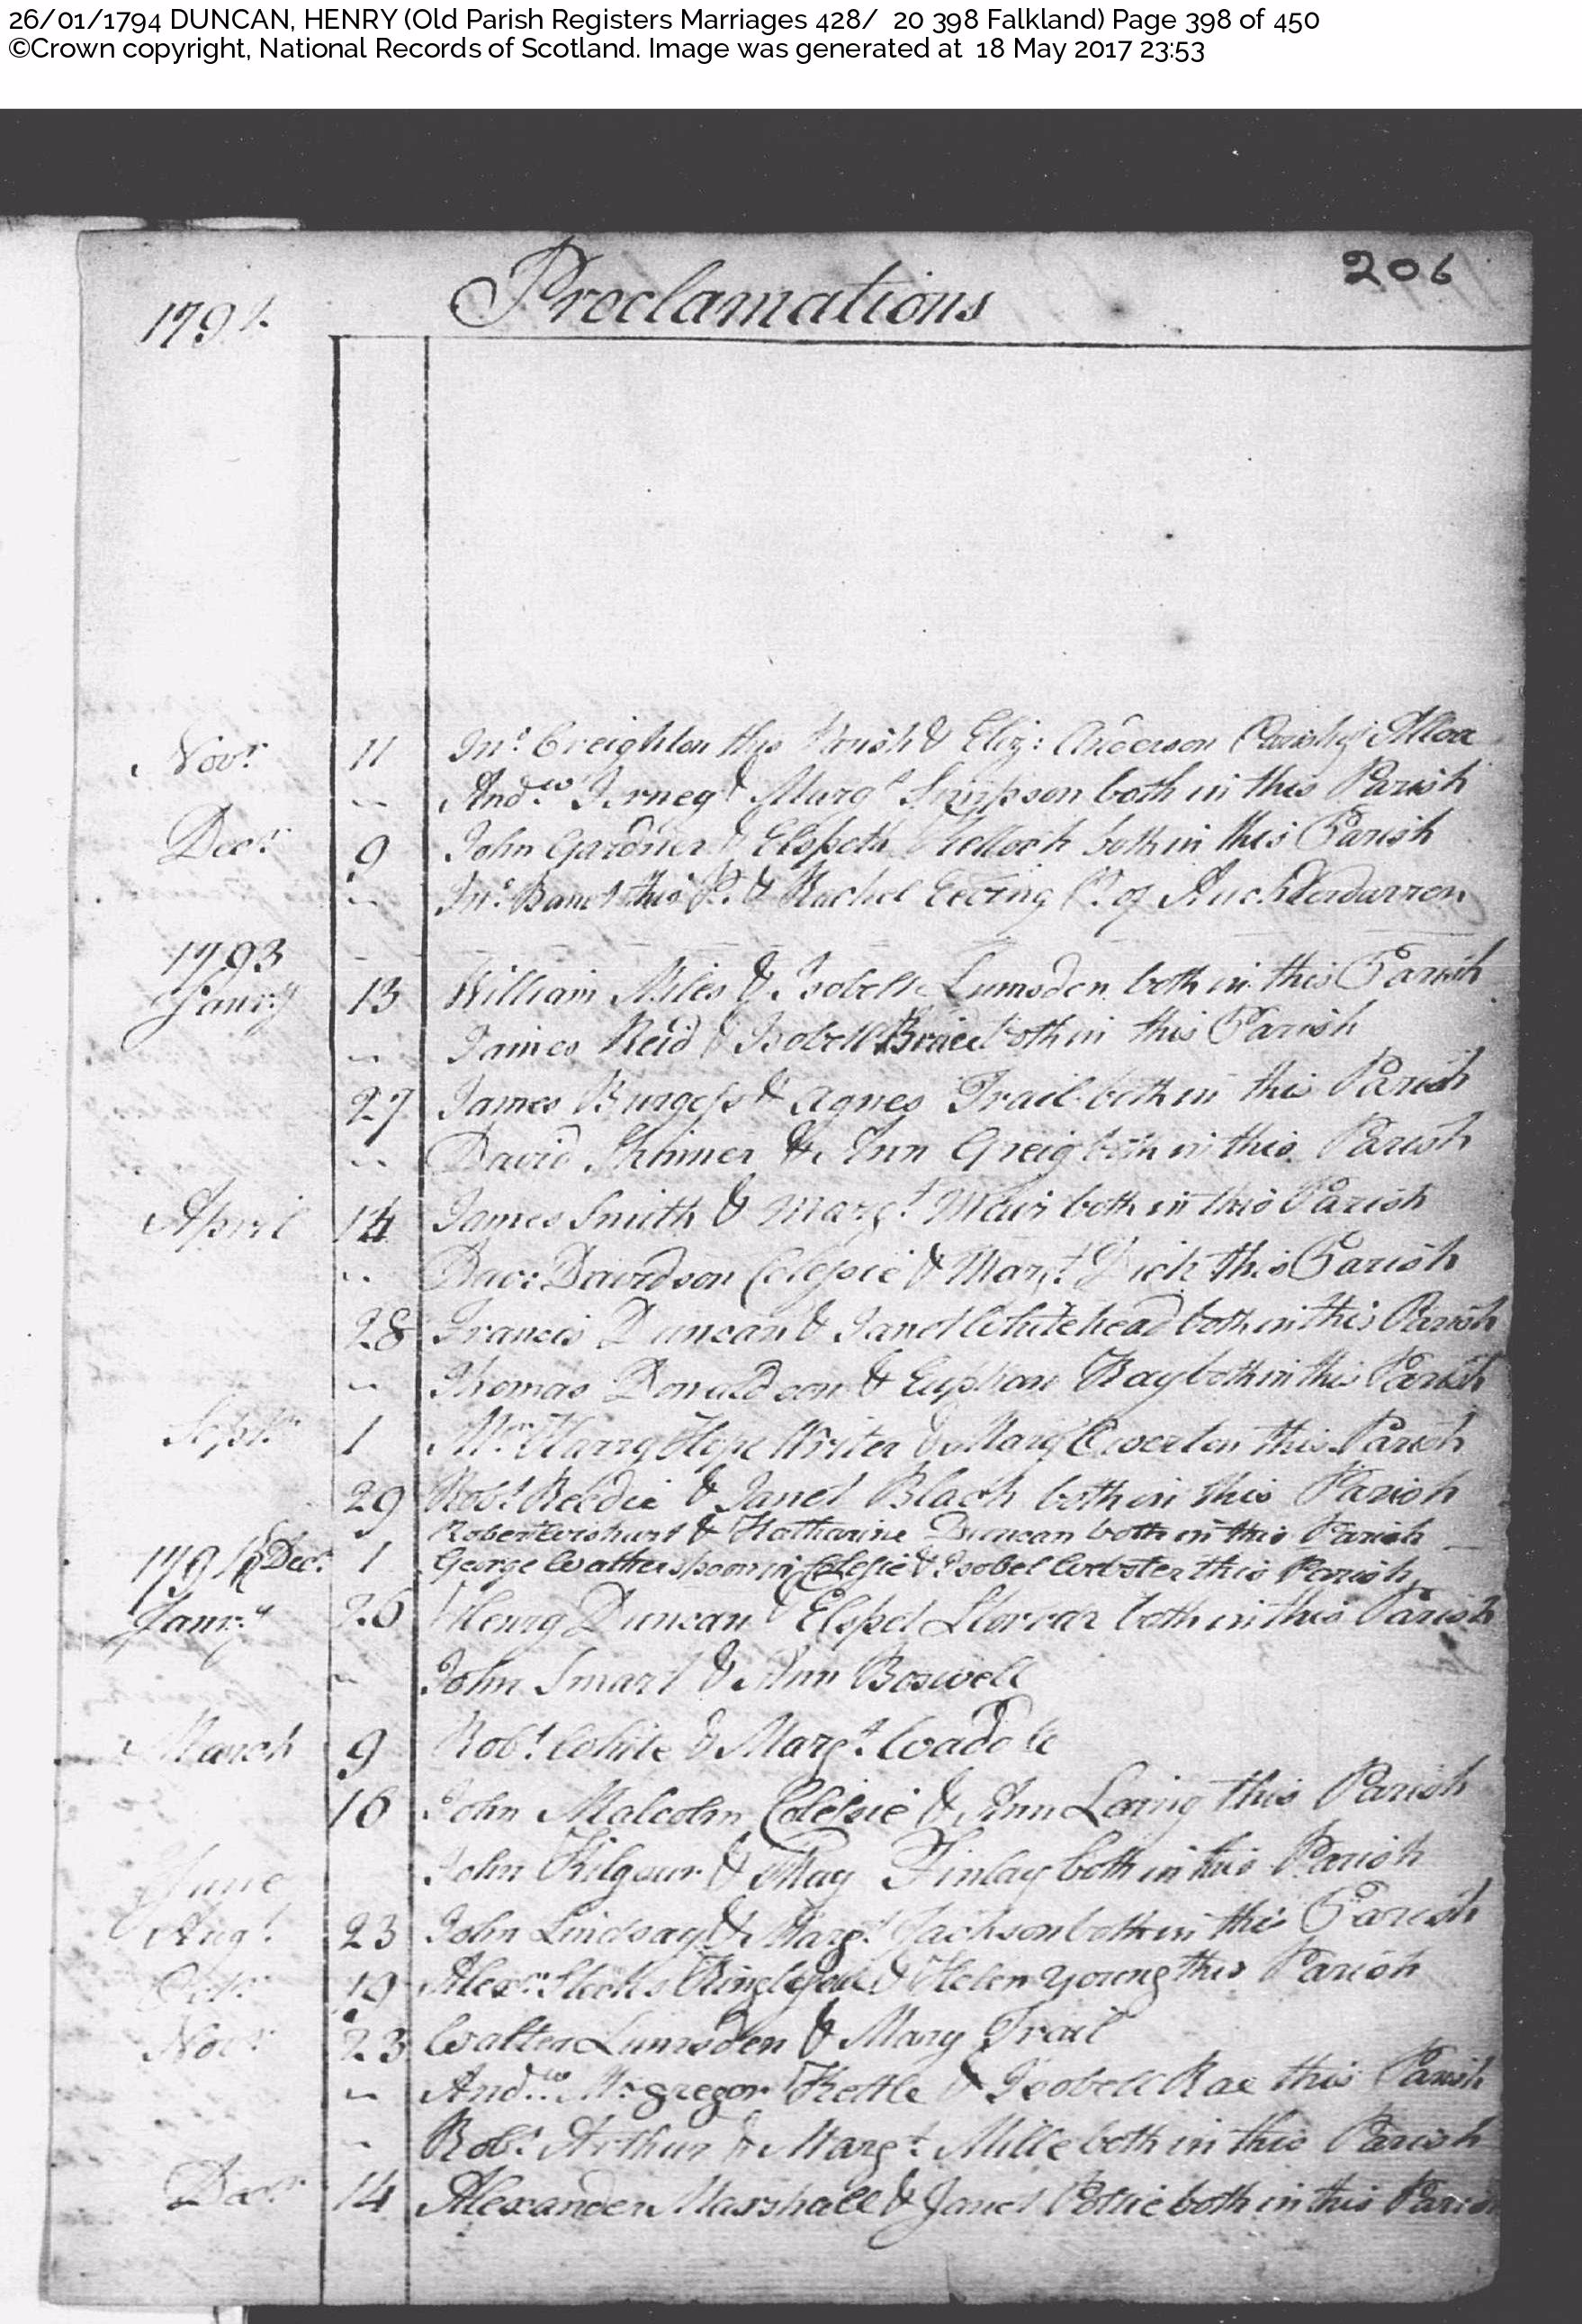 26/01/1794 DUNCAN, HENRY (Old Parish Registers Marriages 428/ 20 398 Falkland) Page 398 of 450
©Crown copyright, National Records of Scotland. Image was generated at 18 May 2017 23:53
206
Proclamations
179
Novr 11 Jno Creighton this Parish & Eliz: Anderson Parish of Alloa
~ Andw & Margt Simpson both in this Parish
Decr 9 John Gardner & Elspeth both in this Parish
~ Jno this P. & Rachel Ewing P. of Auchterdarren
1793
Janry 13 William Miles & Isobell Lumsden both in this Parish
~ James Reid & Isobell both in this Parish
27 James Burgess & Agnes Trail both in this Parish
~ David Skinner & Ann Greig both in this Parish
April 14 James Smith & Margt Muir both in this Parish
~ Dav: Davidson Colessie & Margt Dick this Parish
28 Francis Duncan & Janet Whitehead both in this Parish
~ Thomas Donaldson & Euphan Kay both in this Parish
Septr 1 Mr Harry Hope Writer & this Parish
29 Robt Reedie & Janet Black both in this Parish
Robert & Katharine Duncan both in this Parish
1794 Decr 1 George Watherspoon in Colessie & Isobel Webster this Parish
Janry 26 Henry Duncan & Elspet both in this Parish
~ John Smart & Ann Boswell
March 9 Robt White & Margt Waddle
16 John Malcolm Colessie & Ann Laing this Parish
June John Kilgour & May Finlay both in this Parish
Augt 23 John Lindsay & Margt Jackson both in this Parish
Octr 19 Alexr & Helen Young this Parish
Novr 23 Walter Lumsden & Mary Trail
~ Andw Mcgregor Kettle & Isobell Rae this Parish
~ Robt Arthur & Margt Mille both in this Parish
Decr 14 Alexander Marshall & Janet both in this Parish